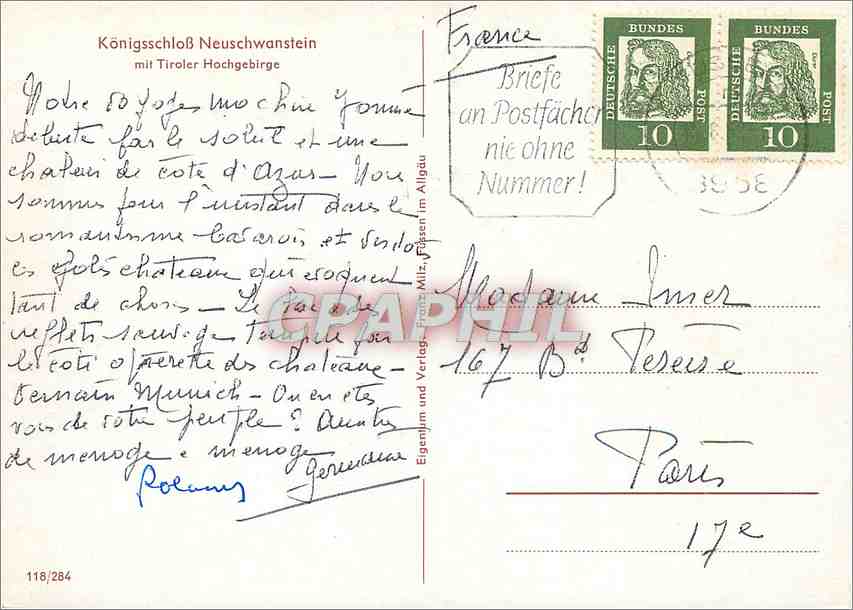 Königsschloß Neuschwanstein
mit Tiroler Hochgebirge
Notre voyage
par le soleil et une
chaleur de côte d'Azur - Nous
sommes pour l'instant dans le
romantisme bavarois et
ces jolis chateaux qui évoquent
tant de choses - Le
reflets sauvage par
le côté opérette des chateaux -
Demain Munich - Où en êtes
vous de votre peuple?
de menage a menage
Germaine
Roland
118/284
Eigentum und Verlag Franz Milz, Füssen im Allgäu
France
Briefe
an Postfächer
nie ohne
Nummer!
DEUTSCHE BUNDES POST
10
DEUTSCHE BUNDES POST
10
Dürer
Madame Imer
167 Bd Pereire
Paris
17e
CPAPHIL